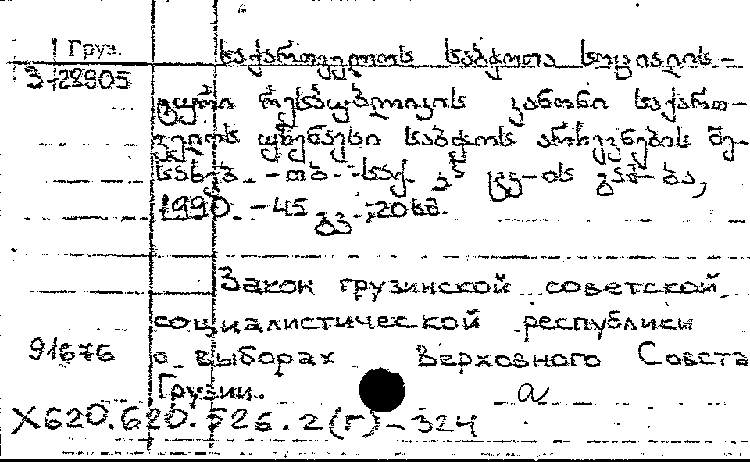 Груз.
3-28905
საქართველოს საბჭოთა სოციალის-
ტური რესპუბლიკის კანონი საქართ-
ველოს უზენაესი საბჭოს არჩევნების შე-
სახებ. -თბ.: საქ. კპ ცკ-ის გამ-ბა,
1990. -45 გვ.; 20სმ.
Закон грузинской советской
социалистической республики
91676 о выборах Верховного Совета
Грузии.
а
Х620.620.526.2(Г)-324